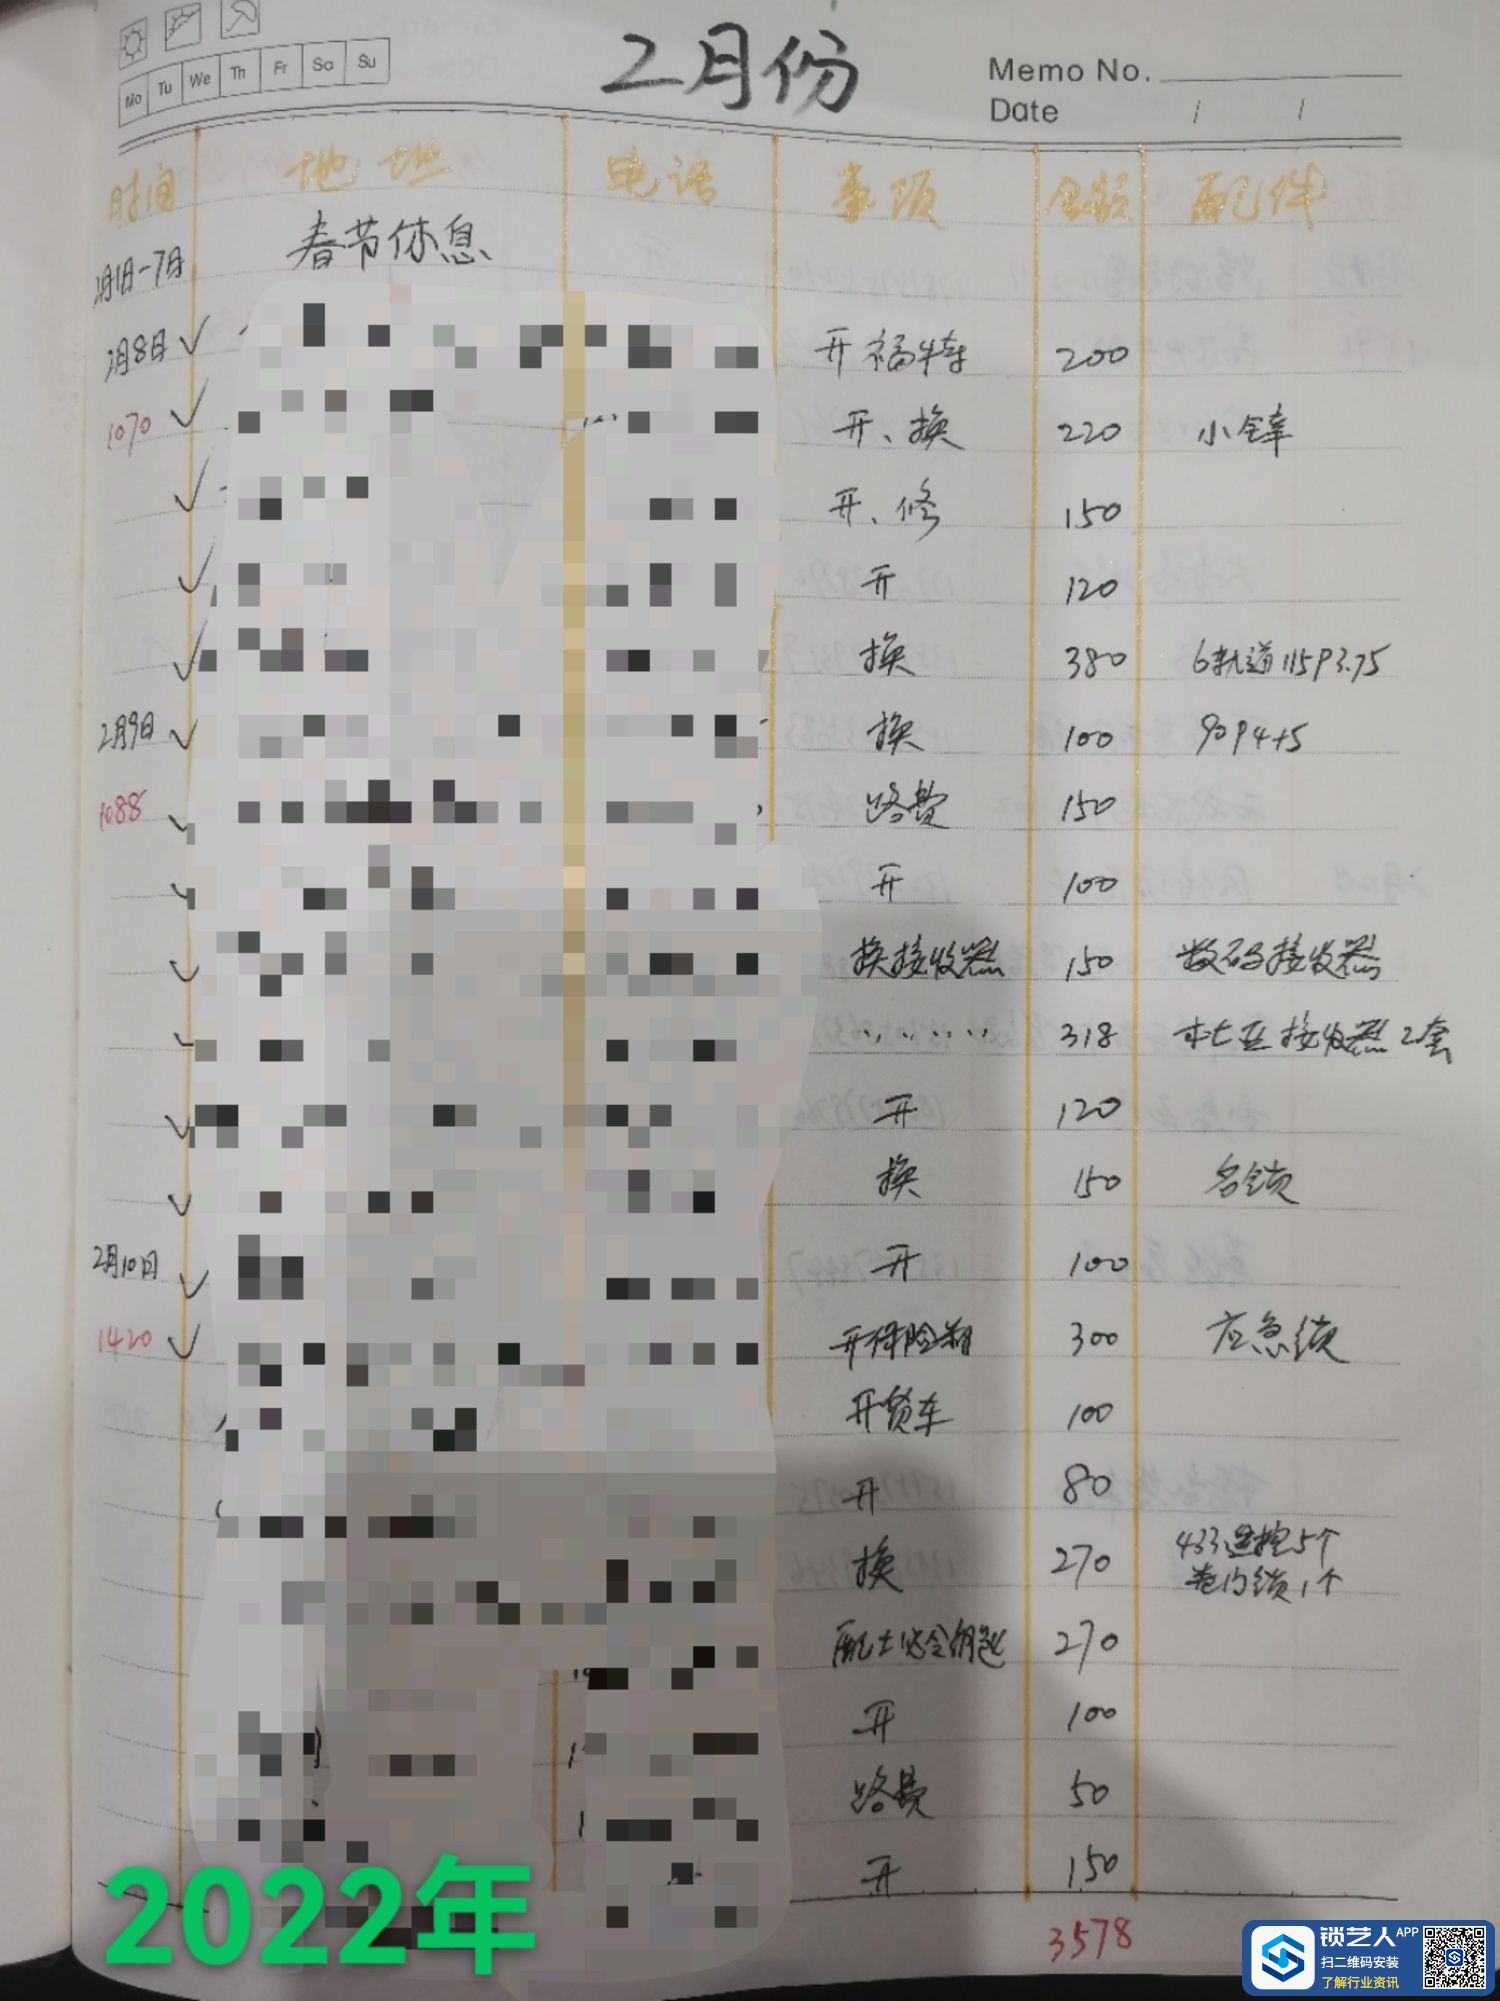 2月份
Memo No.
Date / /
Mo Tu We Th Fr Sa Su
时间 地址 电话 事项 金额 配件
2月1日-7日 春节休息
2月8日 开福特 200
1070 开、换 220 小锌
开、修 150
开 120
换 380 6轨道115P3.75
2月9日 换 100 90P4+5
1088 路费 150
开 100
换接收器 150 数码接收器
318 杜亚接收器2套
开 120
换 150 名锁
2月10日 开 100
1420 开保险箱 300 应急锁
开货车 100
开 80
换 270 433遥控5个
卷门锁1个
配士必令钥匙 270
开 100
路费 50
开 150
3578
2022年
锁艺人APP
扫二维码安装
了解行业资讯